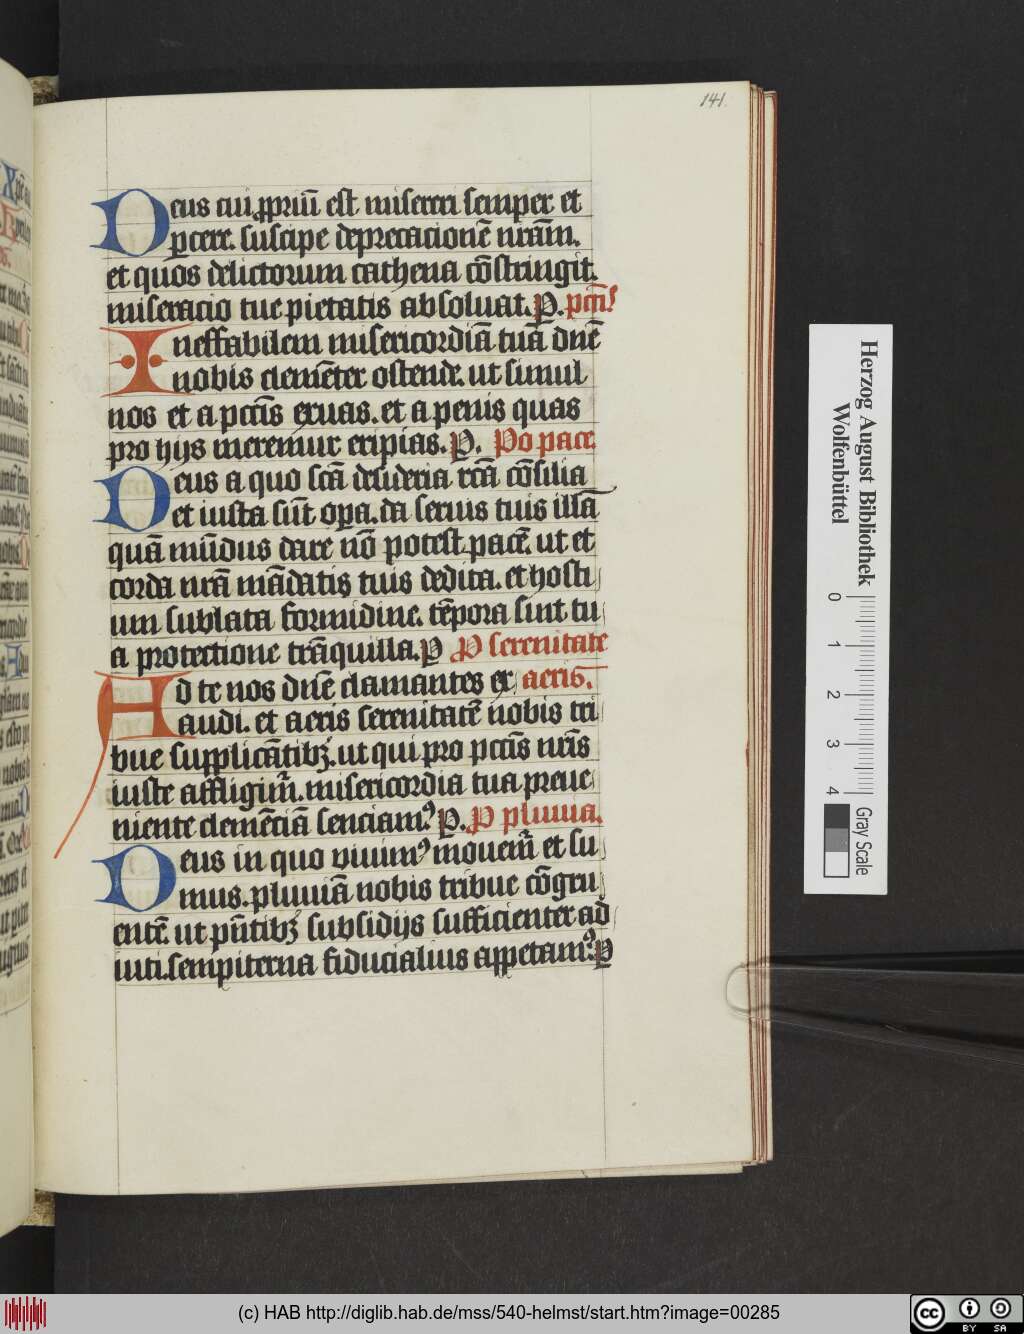 141.
Deus cui ꝓpriū est misereri semper et
ꝑcere. suscipe deprecacionē nrām.
et quos delictorum cathena cōstringit.
miseracio tue pietatis absoluat. P. pctīs
Ineffabilem misericordiā tuā dnē
nobis clemēter ostende. ut simul
nos et a pctīs exuas. et a penis quas
pro hijs meremur eripias. P. Po pace.
Deus a quo scā desideria rcā cōsilia
et iusta sūt oꝑa. da seruis tuis illā
quā mūdus dare nō potest pacē. ut et
corda nrā mādatis tuis dedita. et hosti
um sublata formidine. tēpora sint tu
a protectione trāquilla. P P serenitate
Ad te nos dnē clamantes ex aeris.
audi. et aeris serenitatē nobis tri
bue supplicātibꝫ. ut qui pro pctīs nrīs
iuste affligimr̄. misericordia tua preue
niente clemēciā senciamꝰ P. P pluuia.
Deus in quo viuimꝰ mouemr̄ et su
mus. pluuiā nobis tribue cōgru
entē. ut pn̄tibꝫ subsidijs sufficienter ad
iuti. sempiterna fiducialius appetamꝰ. P
Herzog August Bibliothek
Wolfenbüttel
0 1 2 3 4
Gray Scale
(c) HAB http://diglib.hab.de/mss/540-helmst/start.htm?image=00285
cc BY SA